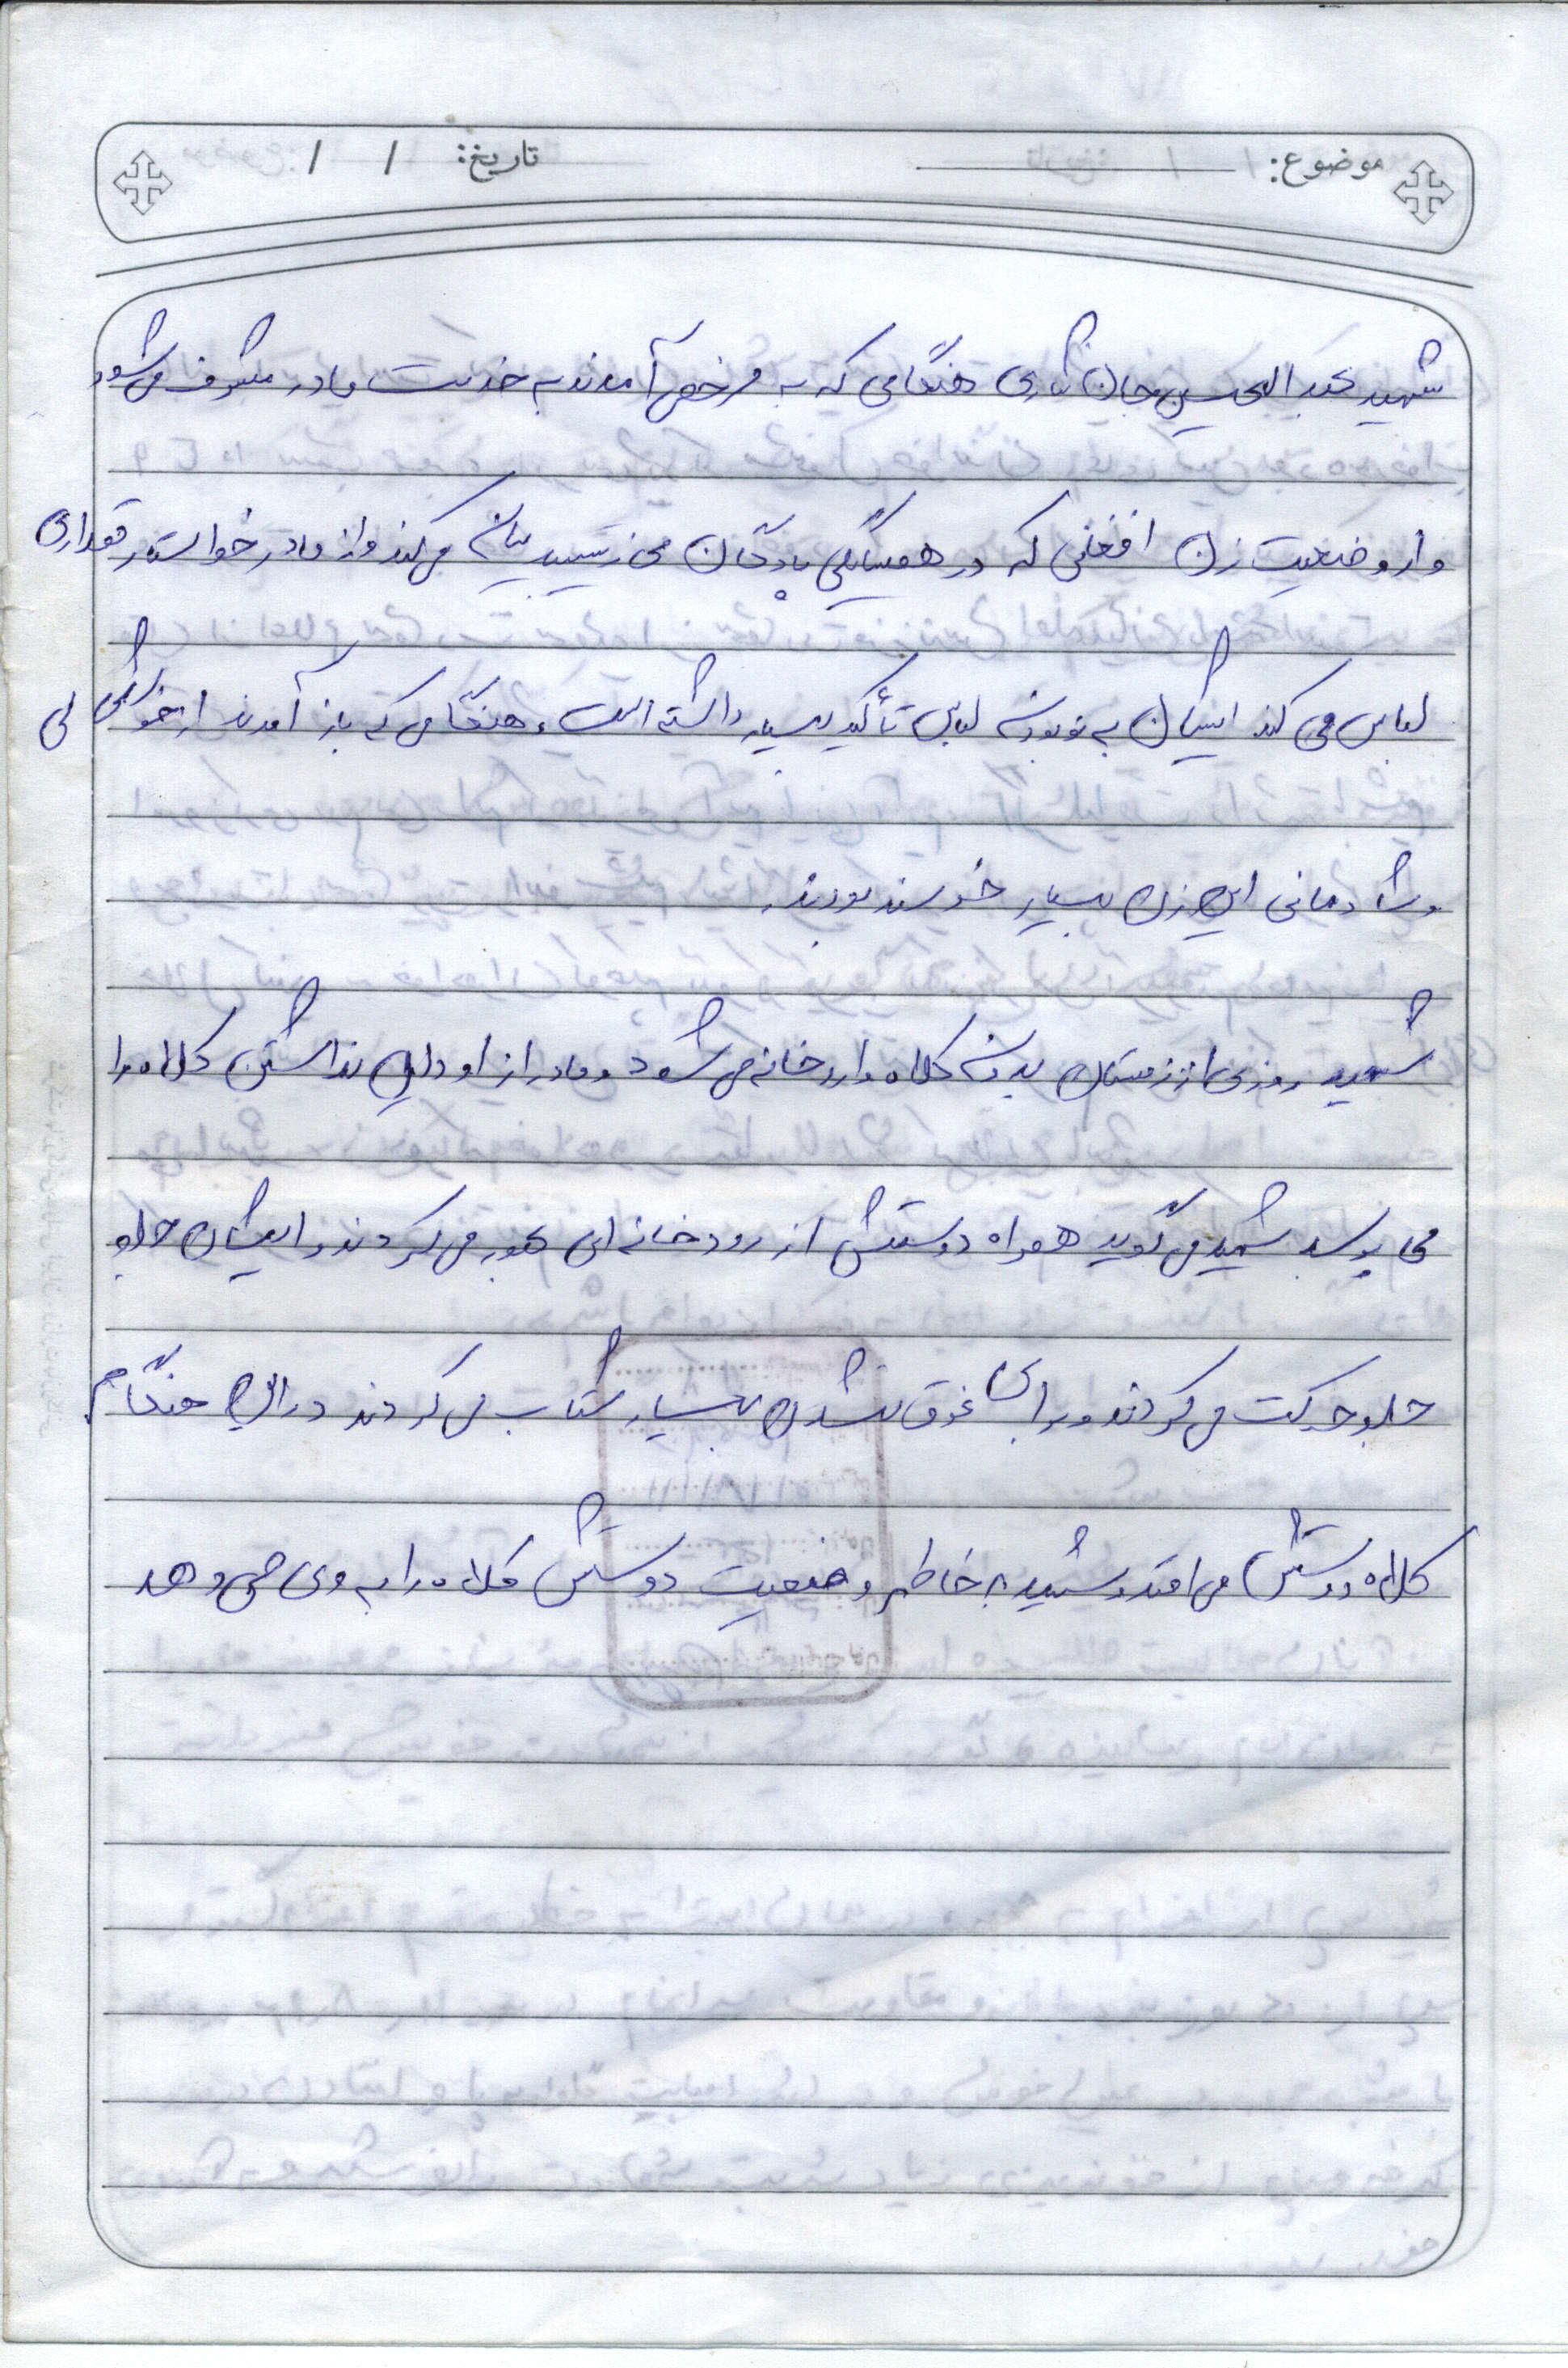 موضوع: تاریخ: / /
شهید عبدالحسین جان نثاری هنگامی که به مرخصی آمدند به خدمت مادر مشرف می شود
و از وضعیت زن افغنی که در همسایگی پادگان می زیسته بیان می کند و از مادر خواستار مقداری
لباس می کند ایشان به نو بودن لباس تأکید بسیار داشته است، هنگامی که باز آمدند از خوشحالی
و شادمانی این زن بسیار خرسند بودند.
شهید روزی از زمستان بدون کلاه وارد خانه می شود و مادر از او دلیل نداشتن کلاه را
می پرسد شهید می گوید همراه دوستش از رودخانه ای عبور می کردند و ایشان جلو
جلو حرکت می کردند و برای غرق نشدن بسیار شتاب می کردند در این هنگام
کلاه دوستش می افتد و شهید به خاطر وضعیت دوستش کلاه را به وی می دهد